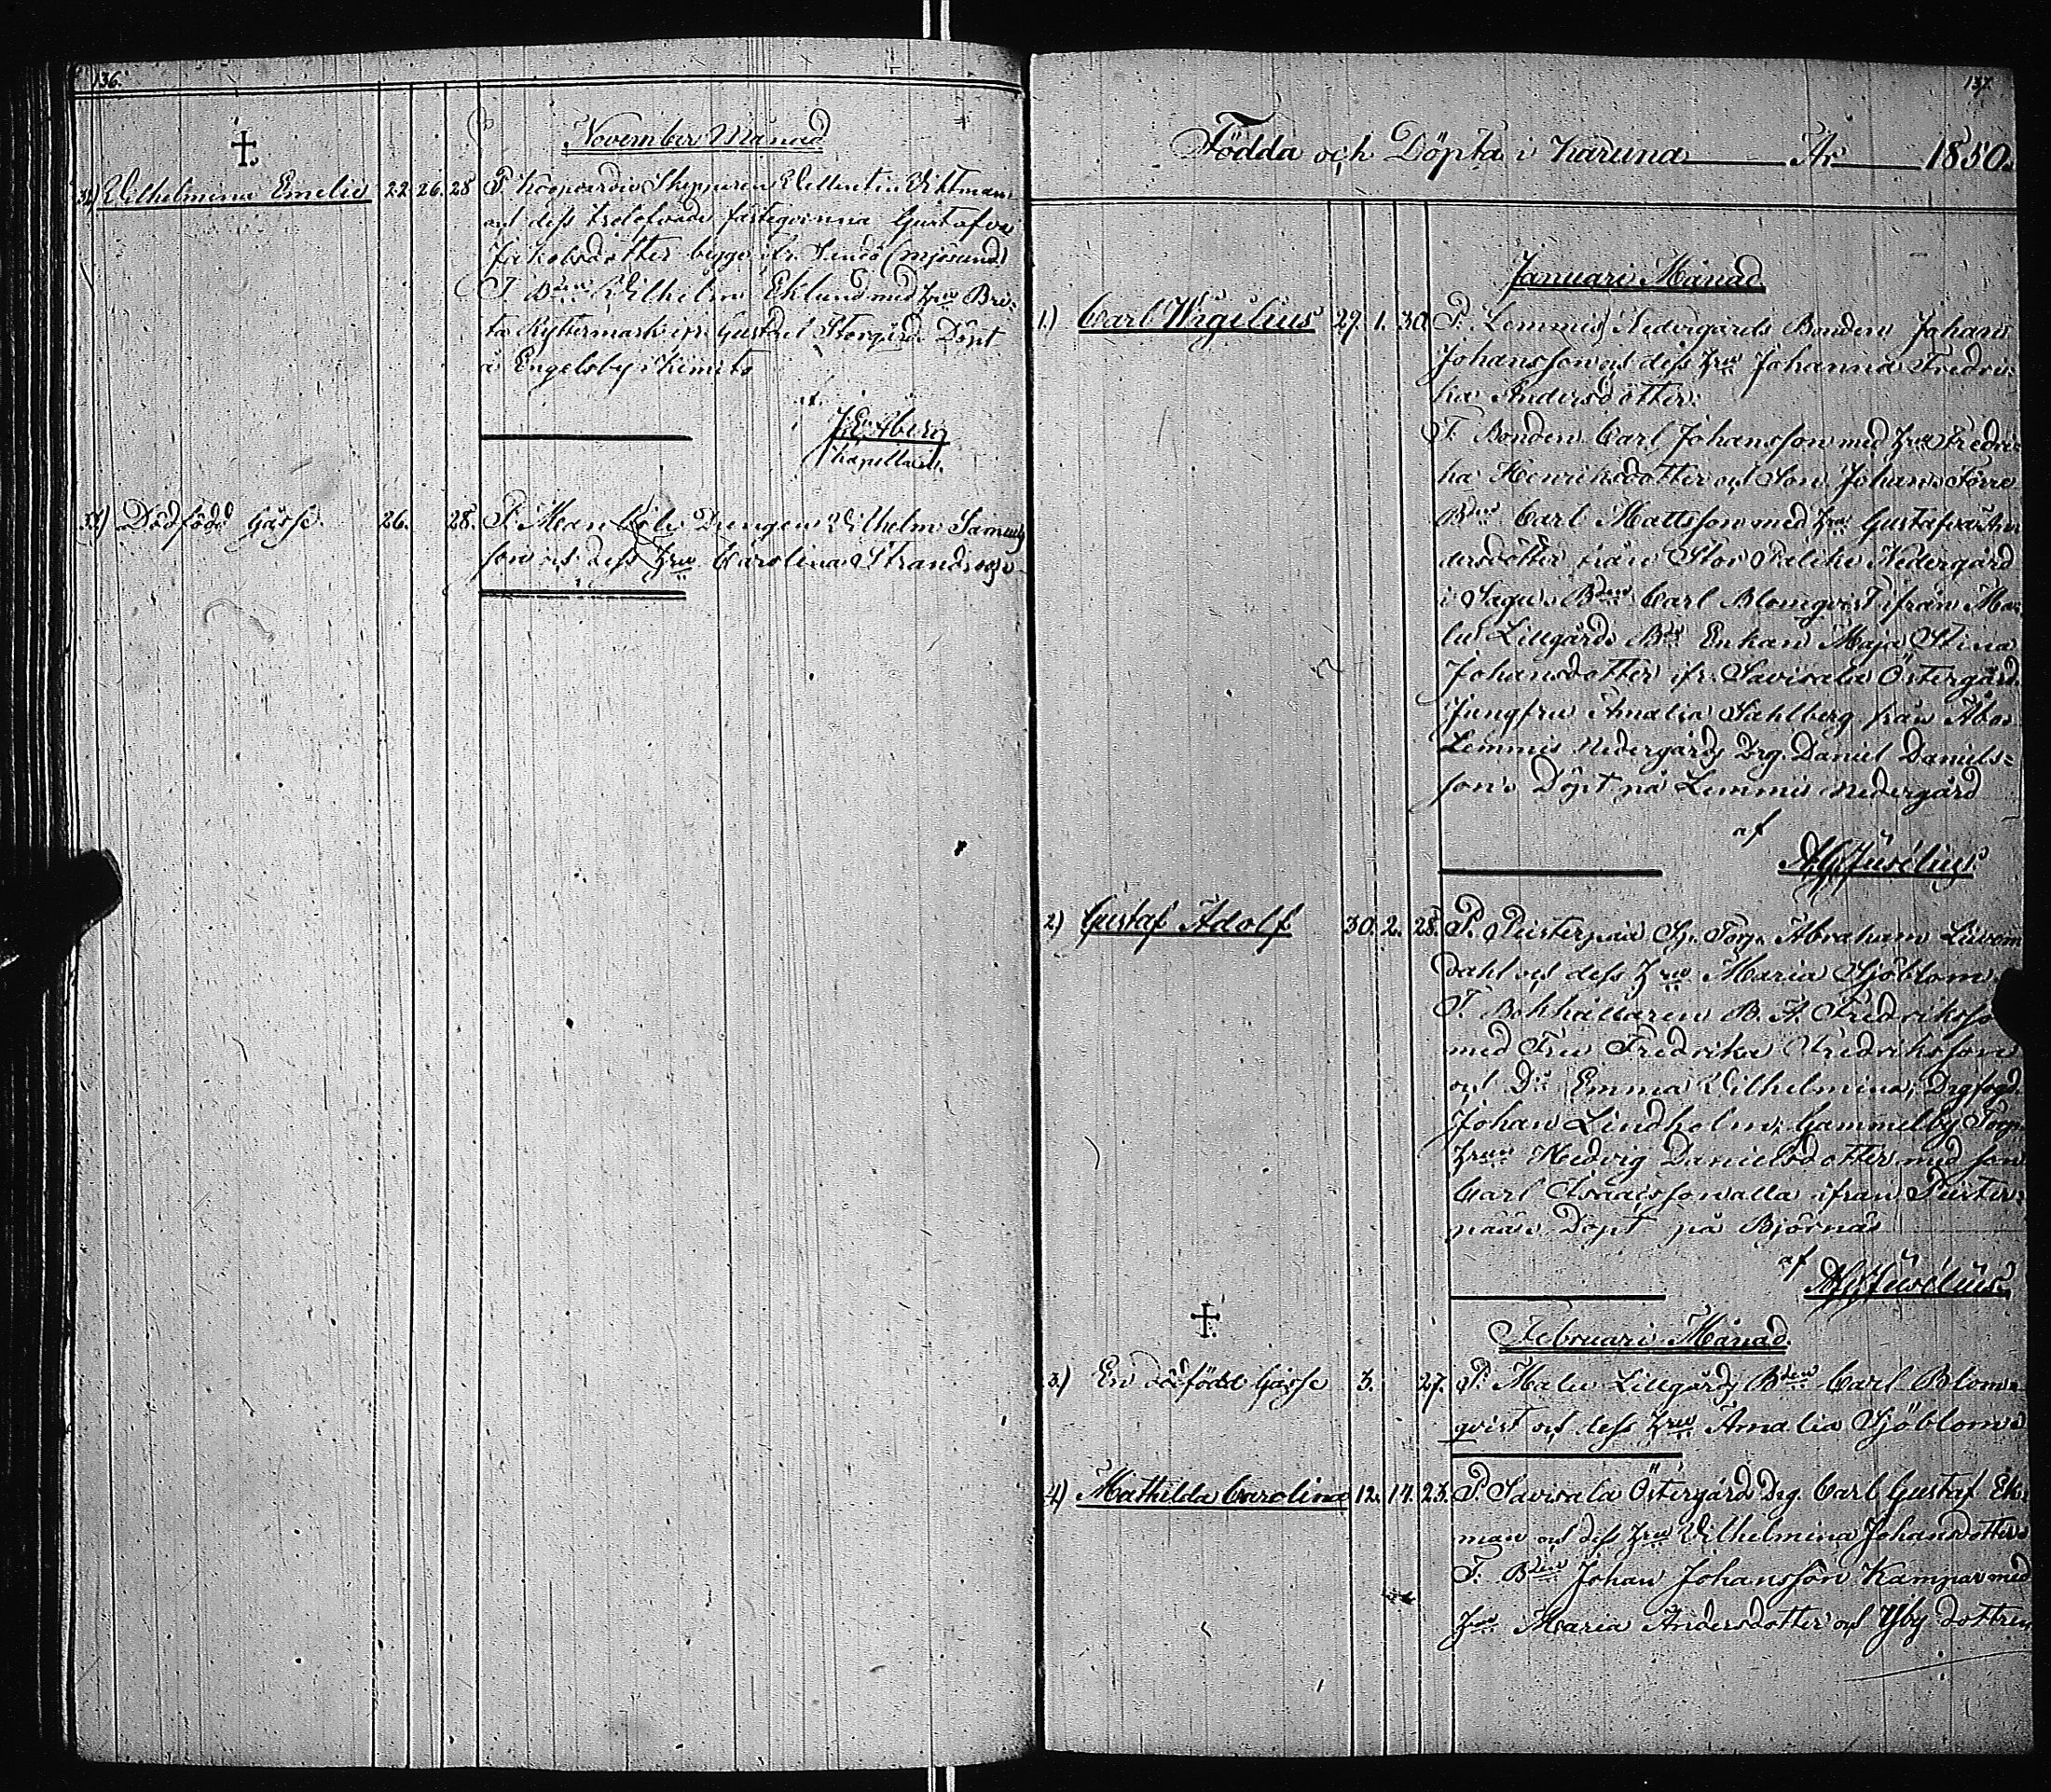 136.
November Månad
32) Wilhelmina Emelie 22. 26. 28 P. Koopvardie Skepparen Wallentin Wittman
och dess trolofvade fästeqvinna Gustafva
Jakobsdotter begge ifr. (Mjösund)
F. Bden Wilhelm Eklund med hru Bri-
ta Ryttermark ifr. Storgård. Döpt
å Engelsby i Kimito
af.
Åberg
Kapellan.
33) Dödfödd Gåsse. 26. 28. P. Drengen Wilhelm Samuels
son och dess hru Carolina
137.
Födda och Döpta i Karuna År 1850.
Januari Månad
1.) Carl Wirgilius 29. 1. 30. P. Lemmis Nedergårds Bonden Johan
Johansson och dess hru Johanna Fredri-
ka Andersdotter.
F. Bonden Carl Johansson med hru Fredri-
ka Henriksdotter och Son Johan
Bden Carl Mattsson med hru Gustafva An
dersdotter från Stor Nedergård
i Sagu. Bden Carl Blomqvist ifrån Ma-
lu Lillgård. Bde Enkan Maja Stina
Johansdotter ifr. Savisala Östergård.
Jungfru Amalia Sahlberg från Åbo.
Lemmis Nedergårds Drg. Daniel Daniels-
son. Döpt på Lemmis Nedergård
af
2.) Gustaf Adolf 30. 2. 28. P. Pusterpää Torp. Abraham
dahl och dess hru Maria Sjöblom
F. Bokhållaren B. A. Fredriksso
med Fru Fredrika Fredriksson
och Dr Emma Wilhelmina, Drgfogd.
Johan Lindholm, Gammelby Torp.
hrun Hedvig Danielsdotter med son
Carl Isaacsson alla ifrån Puster-
pää. Döpt på Björnäs
af
Februari Månad
3.) En dödfödd Gåsse 3. 27. P. Malu Lillgårds Bden Carl Blom-
qvist och dess hru Amalia Sjöblom
4.) Mathilda Carolina 12. 14. 23. P. Savisala Östergårds Drg. Carl Gustaf Ek-
man och dess hru Wilhelmina Johansdotter
F. Bden Johan Johansson Kampar med
hru Maria Andersdotter och Yby dottren